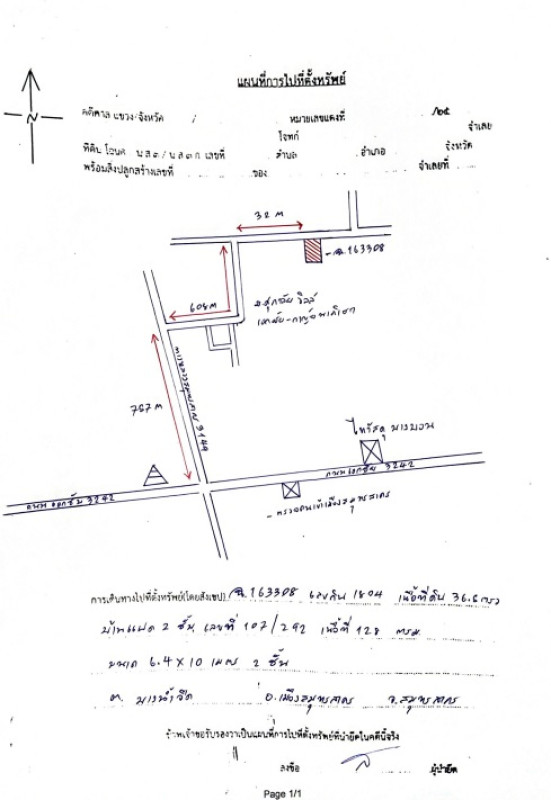 แผนที่การไปที่ตั้งทรัพย์
N
คดีศาล แขวง/จังหวัด หมายเลขแดงที่ /25
โจทก์ จำเลย
ที่ดิน โฉนด น.ส.3 / น.ส.3 ก. เลขที่ ตำบล อำเภอ จังหวัด
พร้อมสิ่งปลูกสร้างเลขที่ ของ จำเลยที่
32 M
ฉ.163308
608 M
757 M
ทางหลวงสมุทรสาคร 3149
ไทวัสดุ บางบอน
ถนน เอกชัย 3242
ถนน เอกชัย 3242
การเดินทางไปที่ตั้งทรัพย์(โดยสังเขป) ฉ.163308 เลขดิน 1804 เนื้อที่ดิน 36.8 ตรว
บ้านแฝด 2 ชั้น เลขที่ 107/292 เนื้อที่ 128 ตรม
ขนาด 6.4 x 10 เมตร 2 ชั้น
ต. บางน้ำจืด อ.เมืองสมุทรสาคร จ.สมุทรสาคร
ข้าพเจ้าขอรับรองว่าเป็นแผนที่การไปที่ตั้งทรัพย์ที่นำยึดในคดีนี้จริง
ลงชื่อ ผู้นำยึด
Page 1/1